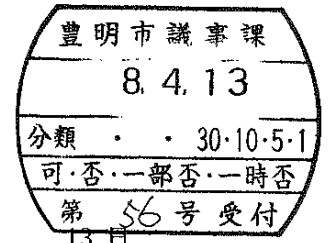 豊明市議事課
8.4.13
分類 ・ ・ 30・10・5・1
可・否・一部否・一時否
第 56 号 受付
13 日